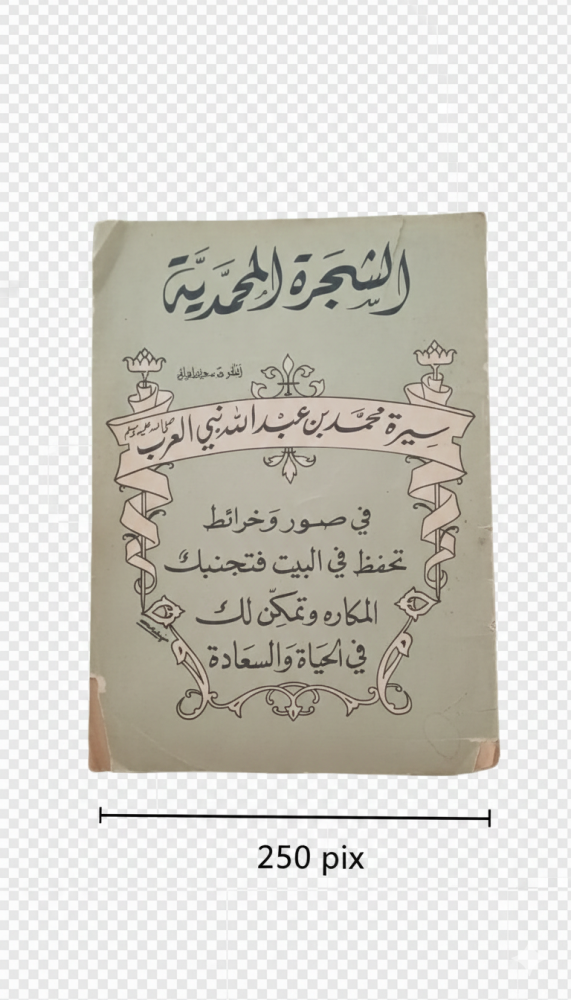 الشجرة المحمدية
سيرة محمد بن عبد الله نبي العرب صلى الله عليه وسلم
في صور وخرائط
تحفظ في البيت فتجنبك
المكاره وتمكّن لك
في الحياة والسعادة
250 pix